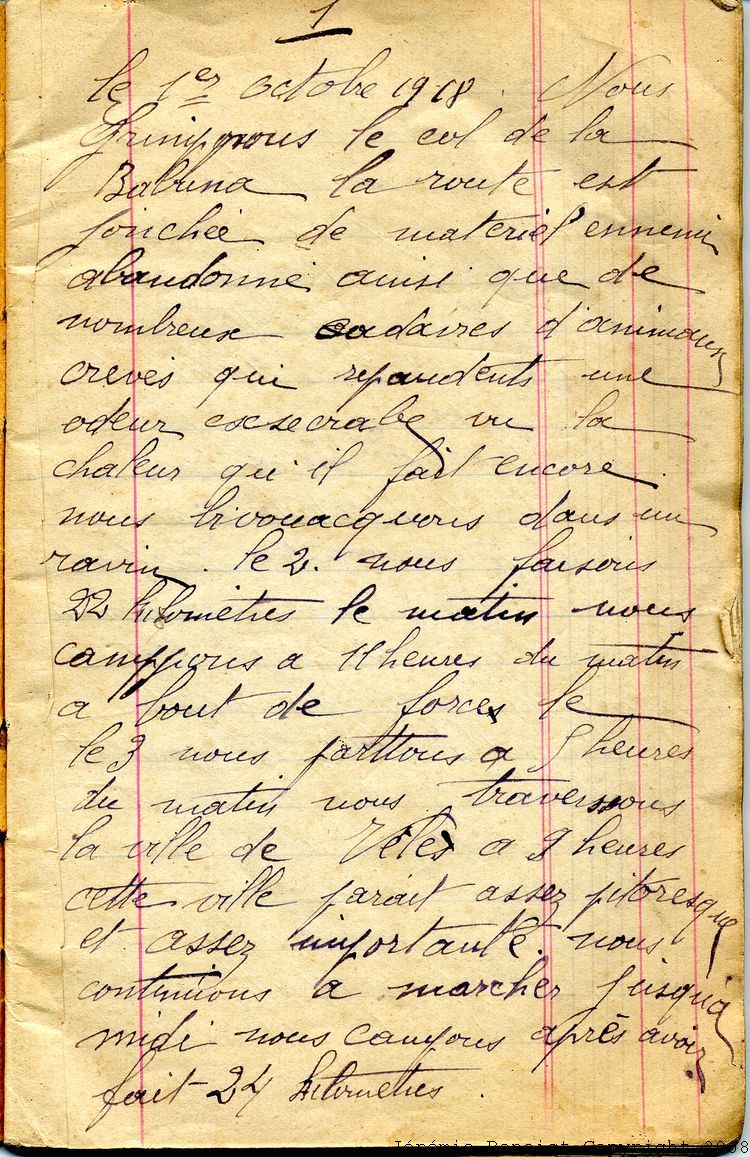 1
le 1er octobre 1918. Nous
grimpons le col de la
Babuna la route est
jonchée de materiel ennemi
abandonné ainsi que de
nombreux cadavres d'animaux
crevés qui repandents une
odeur escsecrabe vu la
chaleur qu'il fait encore.
nous bivouacquons dans un
ravin. le 2. nous faisons
22 kilometres le matin nous
camppons a 11 heures du matin
a bout de forces le
le 3 nous parttons a 5 heures
du matin nous traversons
la ville de Vélès a 9 heures
cette ville parait assez pitoresque
et assez importante. nous
continuions a marcher jusqu'a
midi nous campons après avoir
fait 24 kilometres.
Jérémie Benoist Copyright 2008